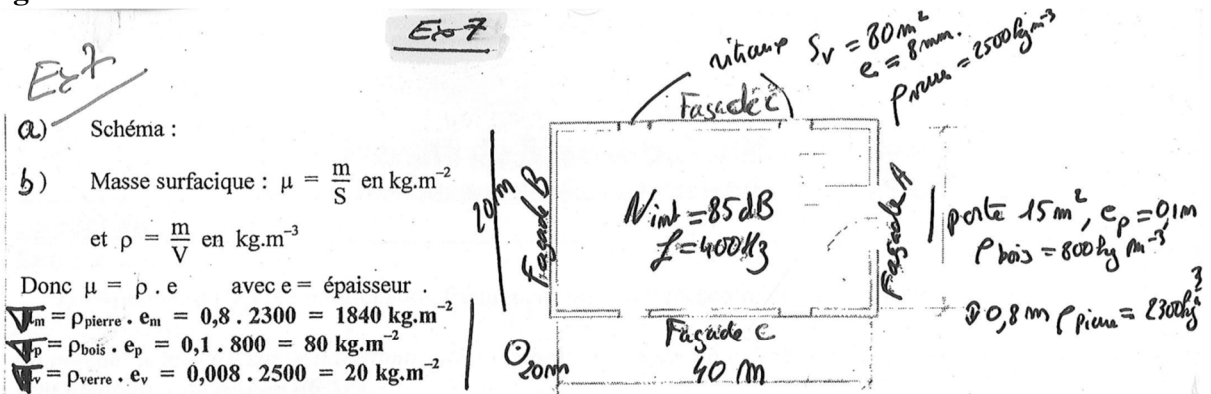 Ex 7
Ex 7
a) Schéma :
b) Masse surfacique : μ = m/S en kg.m⁻²
et ρ = m/V en kg.m⁻³
Donc μ = ρ . e avec e = épaisseur .
m = ρpierre . em = 0,8 . 2300 = 1840 kg.m⁻²
p = ρbois . ep = 0,1 . 800 = 80 kg.m⁻²
v = ρverre . ev = 0,008 . 2500 = 20 kg.m⁻²
vitraux Sv = 80 m²
e = 8 mm.
ρverre = 2500 kg m⁻³
Façade C
20 m
Façade B
Nint = 85 dB
f = 400 Hz
Façade A
porte 15 m², ep = 0,1 m
ρbois = 800 kg m⁻³
0,8 m ρpierre = 2300 kg
Façade C
20 m
40 m